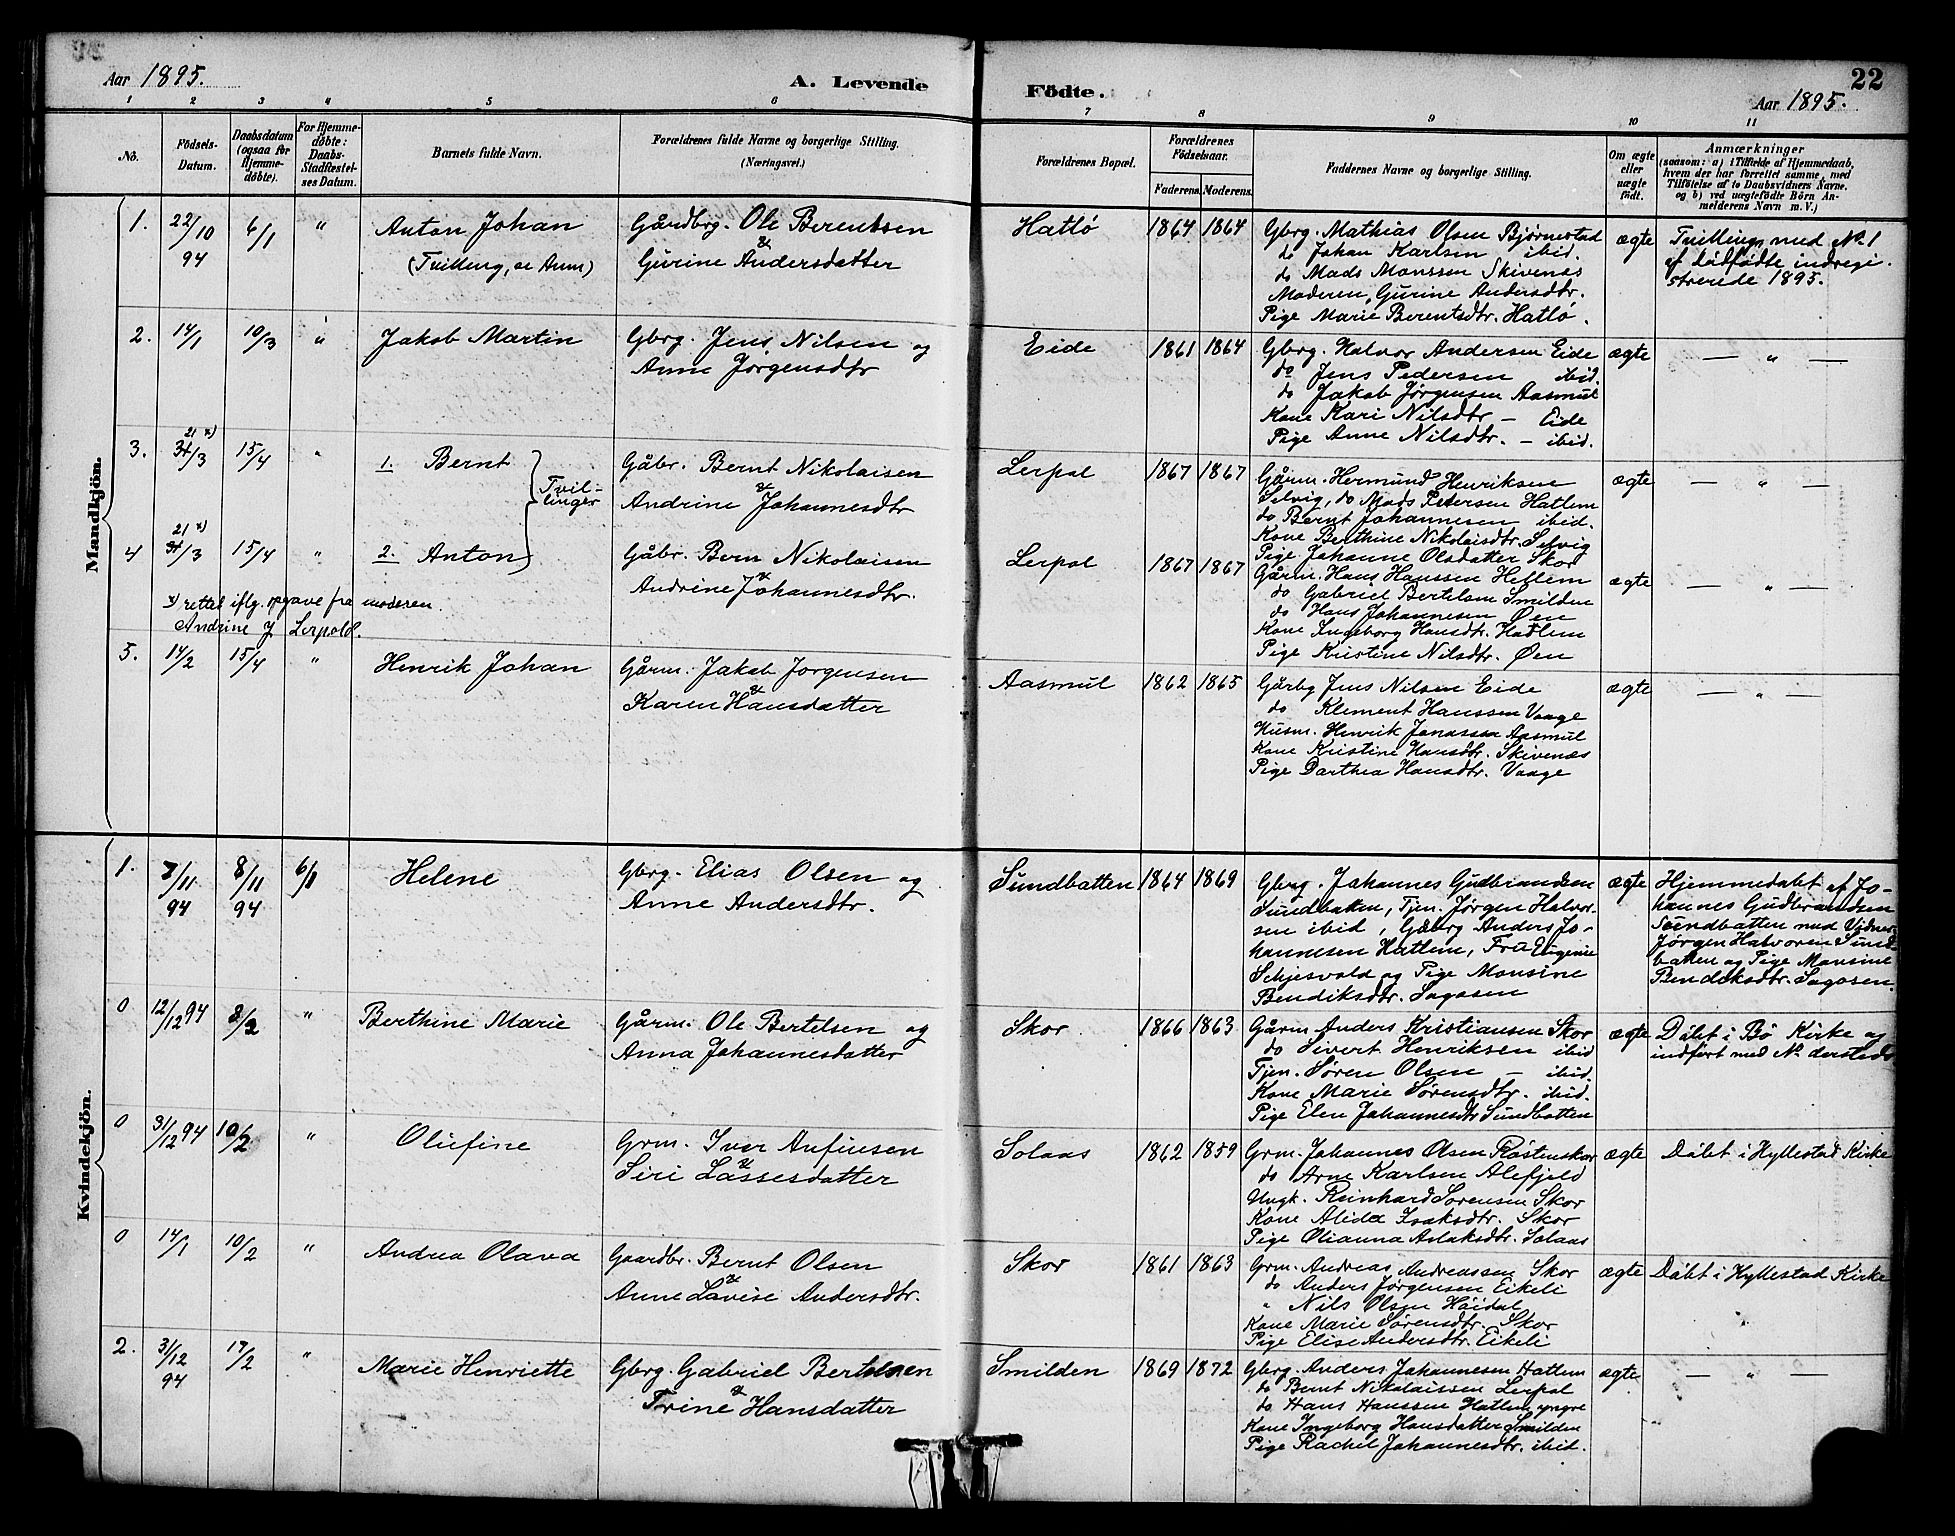 Aar 1895.
A. Levende
Födte.
22
Aar 1895.
1 2 3 4 5 6 7 8 9 10 11
No.
Födsels-
Datum.
Daabsdatum
(ogsaa for
Hjemme-
döbte).
For Hjemme-
döbte:
Daabs-
Stadfæstel-
ses Datum.
Barnets fulde Navn.
Forældrenes fulde Navne og borgerlige Stilling.
(Næringsvei.)
Forældrenes Bopæl.
Forældrenes
Födselsaar.
Faderens. Moderens.
Faddernes Navne og borgerlige Stilling.
Om ægte
eller
uægte
födt.
Anmærkninger
(saasom: a) i Tilfælde af Hjemmedaab,
hvem der har forrettet samme, med
Tilföielse af to Daabsvidners Navne.
og b) ved uægtefödte Börn An-
melderens Navn m. V.)
Mandkjön.
1. 22/10 94 6/1 "
Anton Johan
(Tvilling, se Anm)
Gårdbrg. Ole Berentsen
&
Gurine Andersdatter
Hatlö 1864 1864
Gbrg. Mathias Olsen Björnestad
do Johan Karlsen ibid.
do Mads Monssen Skivenæs
Moderen, Gurine Andersdtr.
Pige Marie Berentsdtr. Hatlö.
ægte
Tvilling med No 1
af dødfødte indregi-
strerede 1895.
2. 14/1 10/3 "
Jakob Martin
Gbrg. Jens Nilsen og
Anne Jørgensdtr
Eide 1861 1864
Gbrg. Halvor Andersen Eide
do Jens Pedersen ibid.
do Jakob Jørgensen Aasmul
Kone Kari Nilsdtr – Eide
Pige Anne Nilsdtr. – ibid.
ægte
— " —
3. 21 x)
31/3 15/4 "
1. Bernt
Tvil-
linger
Gåbr. Bernt Nikolaisen
&
Andrine Johannesdtr
Lerpol 1867 1867
Gårm. Hermund Henriksen
Selvig, do Mads Petersen Hatlem
do Bernt Johannesen ibid.
Kone Berthine Nikolaisdtr. Selvig
Pige Johanne Olsdatter Skor
ægte
— " —
4 21 x)
31/3 15/4 "
2. Anton
Gåbr. Bern Nikolaisen
&
Andrine Johannesdtr.
Lerpol 1867 1867
Gårm. Hans Hanssen Hellem
do Gabriel Bertelsen Smilden
do Hans Johannesen Øen
Kone Ingeborg Hansdtr. Hatlem
Pige Kristine Nilsdtr. Øen
ægte
— " —
x) rettet iflg. opgave fra moderen
Andrine J. Lerpold.
5. 14/2 15/4 "
Henrik Johan
Gårm. Jakob Jorgensen
&
Karen Hansdatter
Aasmul 1862 1865
Gårbg Jens Nilsen Eide
do Klement Hanssen Vaage
Husm. Henrik Jonassen Aasmul
Kone Kristine Hansdtr. Skivenæs
Pige Darthea Hansdtr. Vaage
ægte
— " —
Kvindekjön.
1. 7/11 94 8/11 94 6/1
Helene
Gbrg. Elias Olsen og
Anne Andersdtr.
Sundbatten 1864 1869
Gbrg. Johannes Gudbrandsen
Sundbatten, Tjen. Jørgen Halvor-
sen ibid, Gåbrg Anders Jo-
hannesen Hatlem, Fru Eugenie
Schjesvold og Pige Monsine
Bendiksdtr. Sagosen
ægte
Hjemmedøbt af Jo-
hannes Gudbrandsen
Sundbatten med Vidner
Jørgen Halvorsen Sund-
batten og Pige Monsine
Bendiksdtr. Sagosen.
0 12/12 94 8/2 "
Berthine Marie
Gårm. Ole Bertelsen og
Anna Johannesdatter
Skor 1866 1863
Gårm Anders Kristiansen Skor
do Sivert Henriksen ibid
Tjen. Søren Olsen – ibid.
Kone Marie Sørensdtr. ibid.
Pige Elen Johannesdtr Sundbatten
ægte
Døbt i Bø Kirke og
indført med No dersteds
0 31/12 94 10/2 "
Oliefine
Grm. Iver Anfinsen
&
Siri Lassesdatter
Solaas 1862 1859
Grm. Johannes Olsen Råstenskar
do Arne Karlsen Alefjeld
Ungk. Reinhard Sørensen Skor
Kone Alida Isaksdtr. Skor
Pige Olianna Aslaksdtr. Solaas
ægte
Døbt i Hyllestad Kirke
0 14/1 10/2 "
Andrea Olava
Gaardbr. Bernt Olsen
&
Anne Lovise Andersdtr.
Skor 1861 1863
Grm. Andreas Andreassen Skor
do Anders Jørgensen Eikeli
" Nils Olsen Høidal
Kone Marie Sørensdtr. Skor
Pige Elise Andersdtr. Eikeli
ægte
Døbt i Hyllestad Kirke
"
2. 31/12 94 17/2 "
Marie Henriette
Gbrg. Gabriel Bertelsen
&
Trine Hansdatter
Smilden 1869 1872
Gbrg. Anders Johannesen Hatlem
do Bernt Nikolaissen Lerpol
do Hans Hanssen Hatlem, yngre
Kone Ingeborg Hansdatter Smilden
Pige Rachel Johannesdtr. ibid.
ægte
— " —